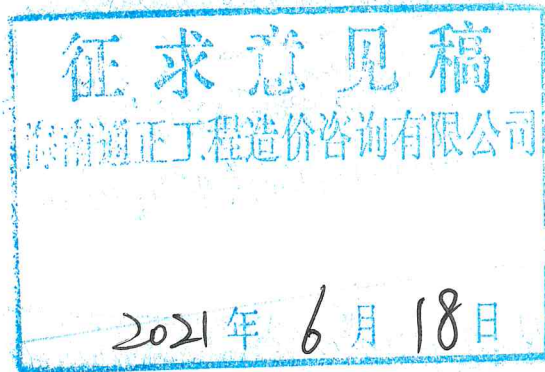 征求意见稿
海南通正工程造价咨询有限公司
2021年6月18日